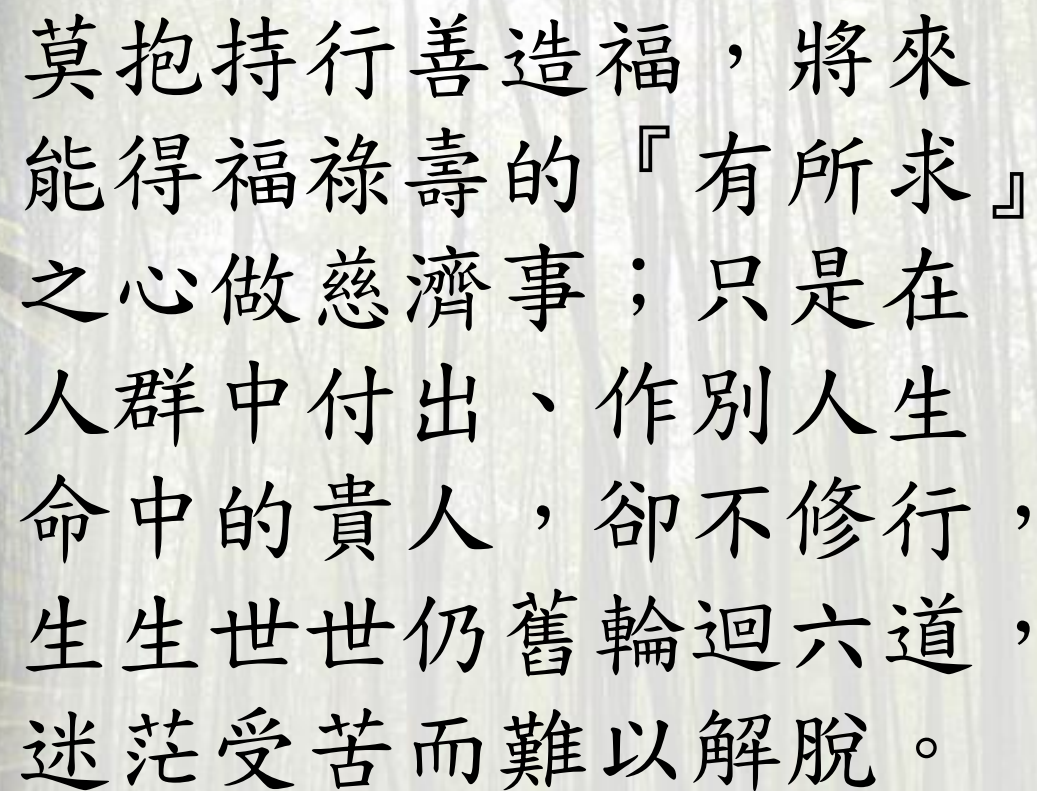 莫抱持行善造福，將來
能得福祿壽的『有所求』
之心做慈濟事；只是在
人群中付出、作別人生
命中的貴人，卻不修行，
生生世世仍舊輪迴六道，
迷茫受苦而難以解脫。